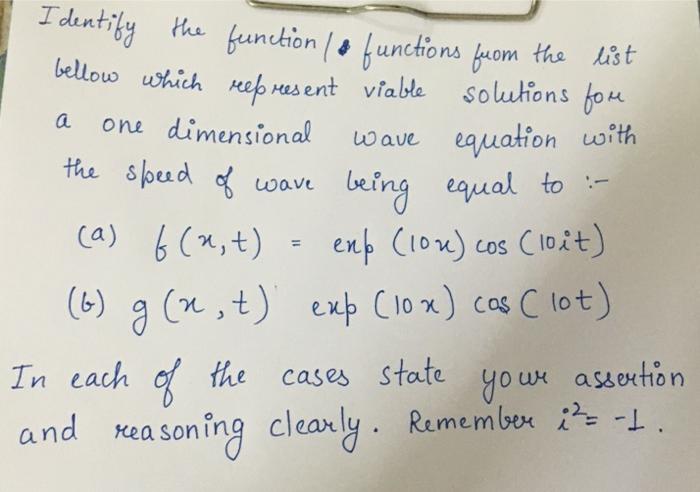 Identify the function/functions from the list
bellow which represent viable solutions for
a one dimensional wave equation with
the speed of wave being equal to :-
(a) f(x,t) = exp (10x) cos (10it)
(b) g(x,t) exp (10x) cos (10t)
In each of the cases state your assertion
and reasoning clearly. Remember i²= -1.